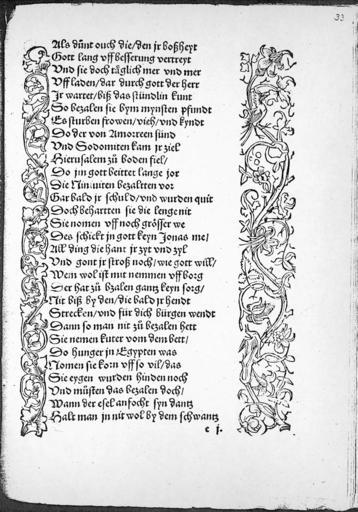 33
Als dünt ouch die/ den jr boßheyt
Gott lang vff besserung vertreyt
Vnd sie doch täglich mer vnd mer
Vff laden/ dar durch gott der herr
Jr wartet/ biß das stündlin kunt
So bezalen sie bym mynsten pfundt
Es sturben frowen/ vieh/ vnd kyndt
Do der von Amorreen sünd
Vnd Sodomiten kam jr ziel
Hierusalem zů boden fiel/
Do jm gott beittet lange jor
Die Niniuiten bezalten vor
Gar bald jr schuld/ vnd wurden quit
Doch behartten sie die lenge nit
Sie nomen vff noch grösser we
Des schickt jn gott keyn Jonas me/
All ding die hant jr zyt vnd zyl
Vnd gont jr stroß noch/ wie gott will/
Wem wol ist mit nemmen vff borg
Der hat zů bzalen gantz keyn sorg/
Nit biß by den/ die bald jr hendt
Strecken/ vnd für dich bürgen wendt
Dann so man nit zů bezalen hett
Sie nemen küter vom dem bett/
Do hunger jn Egypten was
Nomen sie korn vff so vil/ das
Sie eygen wurden hinden noch
Vnd můsten das bezalen doch/
Wann der esel anfocht syn dantz
Halt man jn nit wol by dem schwantz
e j.